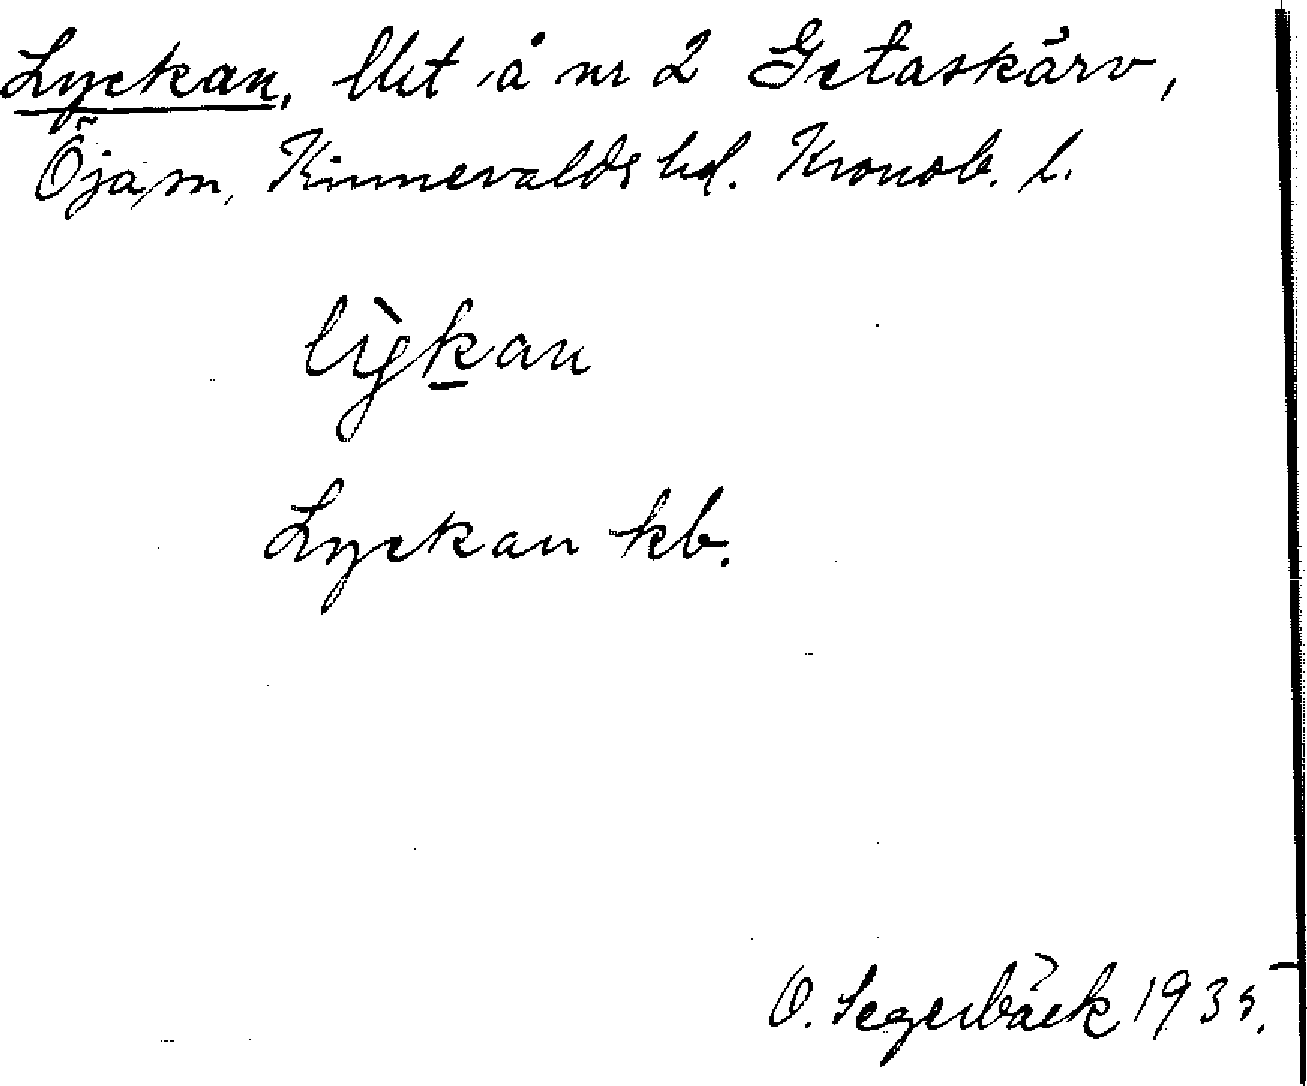 Lyckan, llht å nr 2 Getaskärv,
Öja sn, Kinnevalds hd. Kronob. l.
lỳkan
Lyckan kb.
O. Segerbäck 1935.